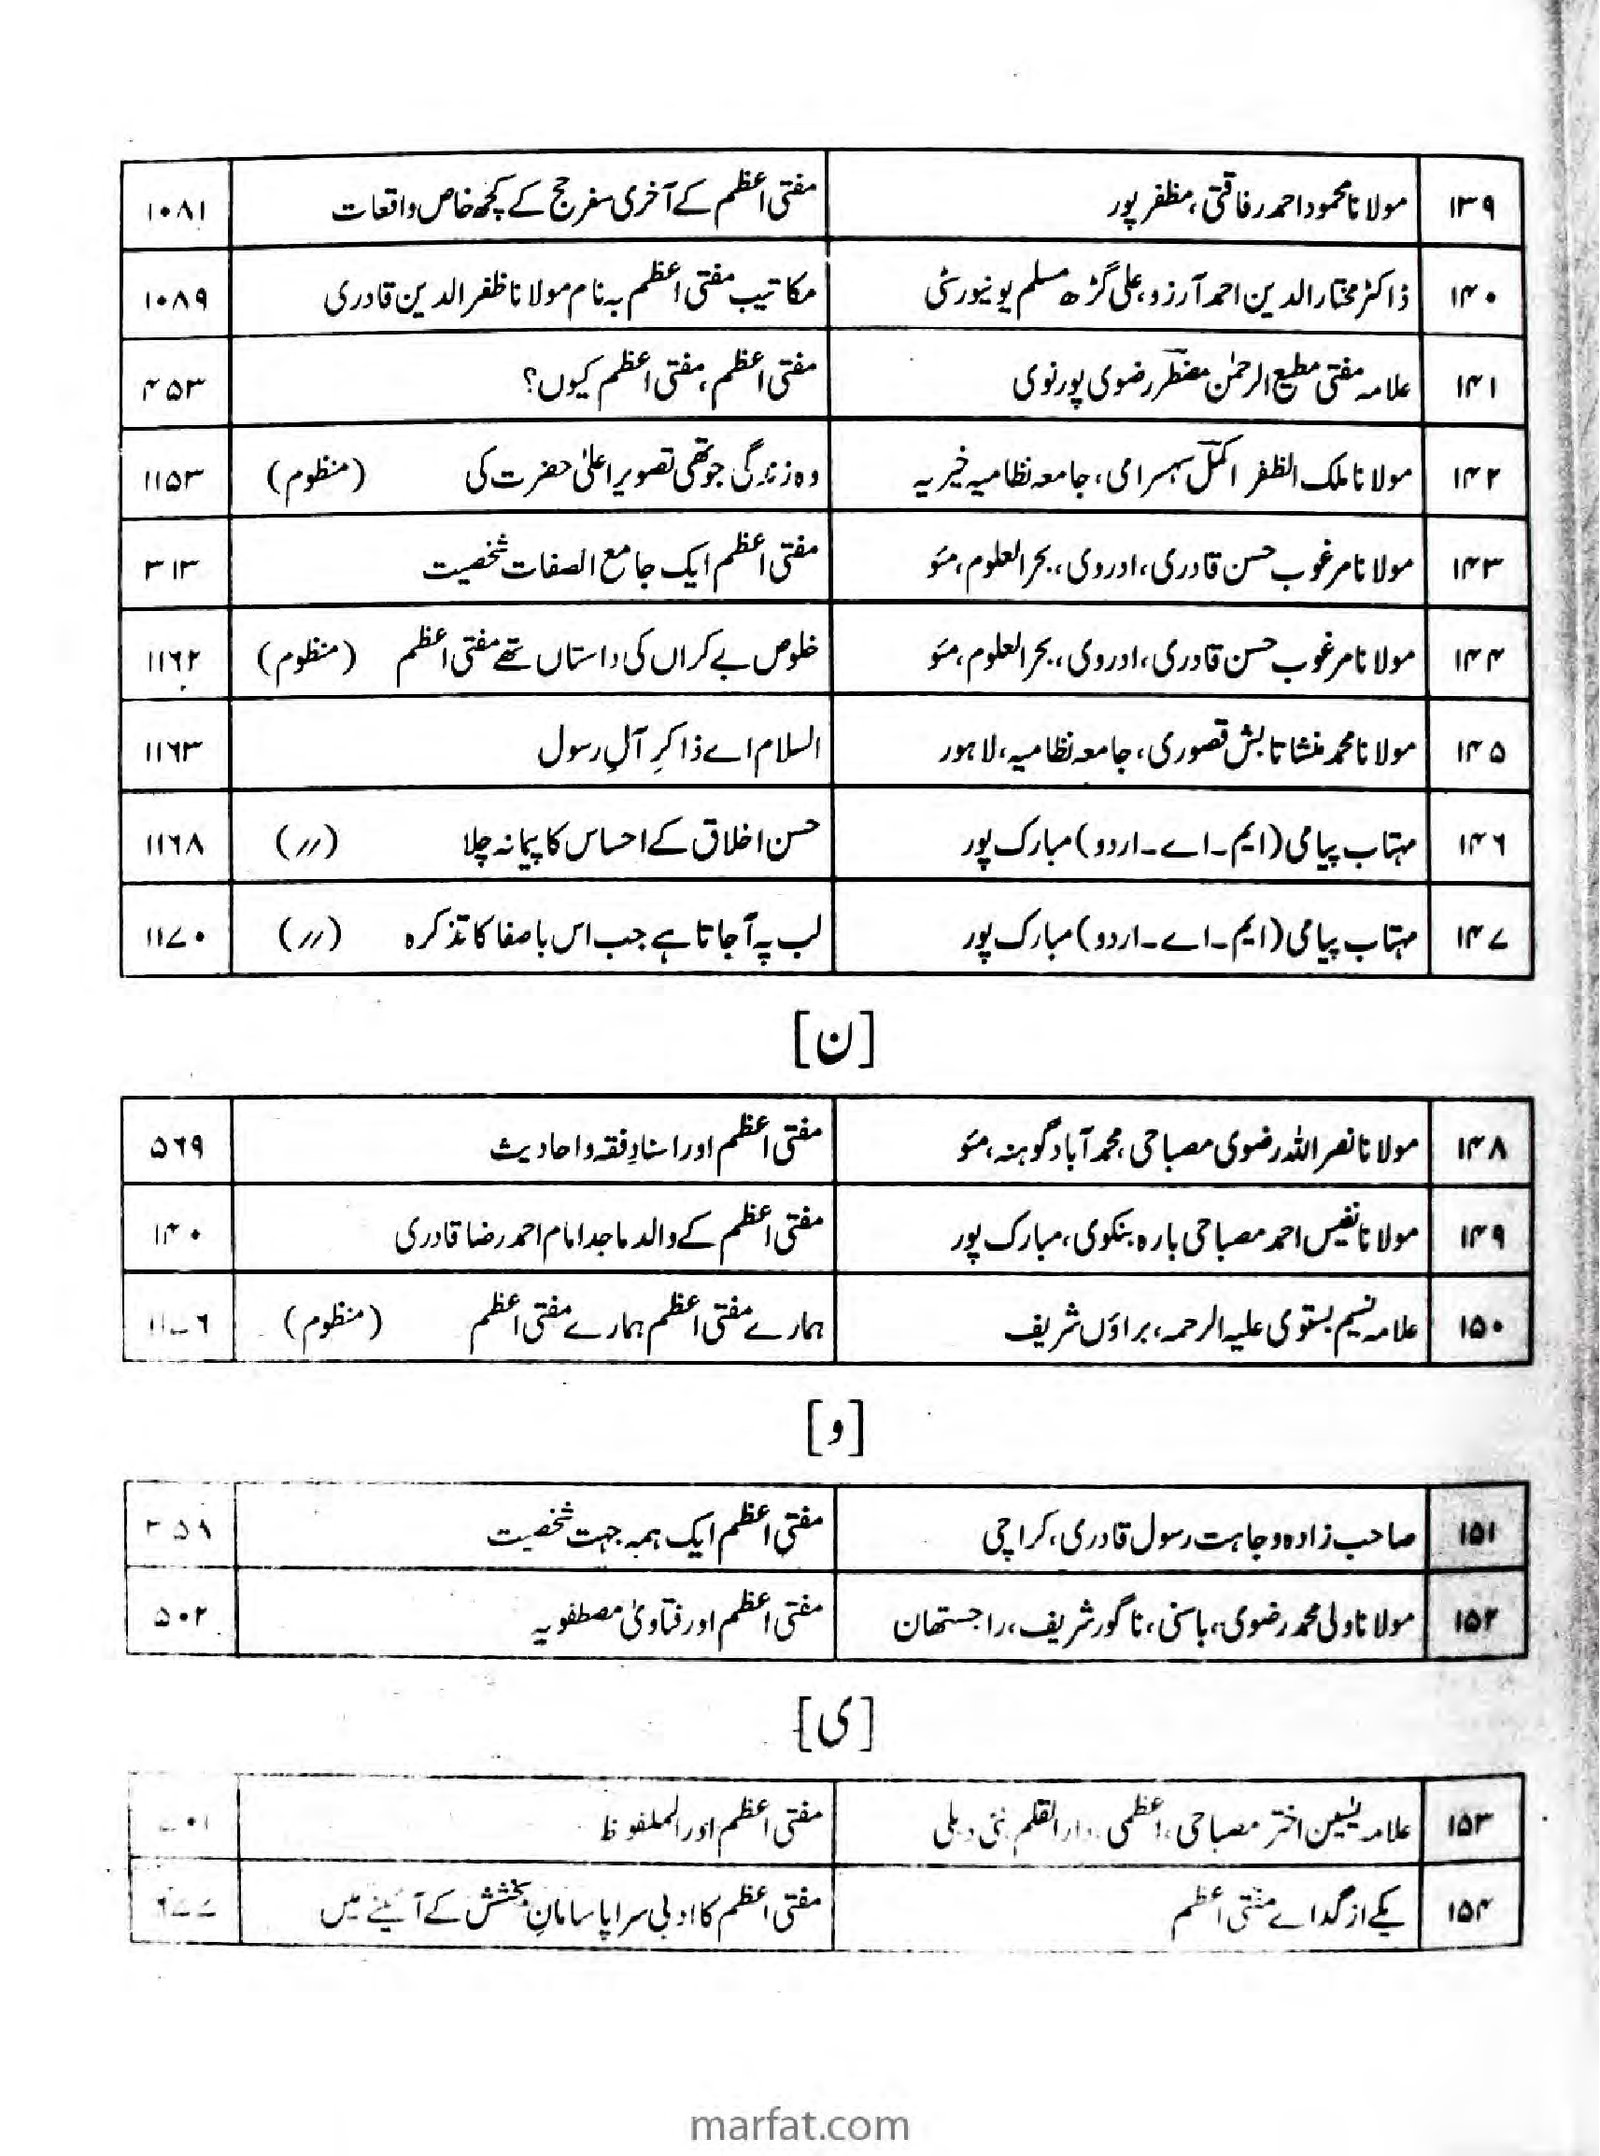 ۱۳۹ مولانا محمود احمد رفاقتی، مظفر پور مفتی اعظم کے آخری سفر حج کے کچھ خاص واقعات ۱۰۸۱
۱۴۰ ڈاکٹر مختار الدین احمد آرزو، علی گڑھ مسلم یونیورسٹی مکاتیب مفتی اعظم بہ نام مولانا ظفر الدین قادری ۱۰۸۹
۱۴۱ علامہ مفتی مطیع الرحمٰن مضطرؔ رضوی پورنوی مفتی اعظم، مفتی اعظم کیوں؟ ۴۵۳
۱۴۲ مولانا ملک الظفر اکملؔ سہسرامی، جامعہ نظامیہ خیریہ وہ زندگی جو تھی تصویر اعلیٰ حضرت کی (منظوم) ۱۱۵۳
۱۴۳ مولانا مرغوب حسن قادری، ادروی، بحر العلوم، مئو مفتی اعظم ایک جامع الصفات شخصیت ۳۱۳
۱۴۴ مولانا مرغوب حسن قادری، ادروی، بحر العلوم، مئو خلوص بے کراں کی داستاں تھے مفتی اعظم (منظوم) ۱۱۶۲
۱۴۵ مولانا محمد منشا تابش قصوری، جامعہ نظامیہ، لاہور السلام اے ذاکرِ آلِ رسول ۱۱۶۳
۱۴۶ مہتاب پیامی (ایم۔اے۔اردو) مبارک پور حسن اخلاق کے احساس کا پیمانہ چلا (〃) ۱۱۶۸
۱۴۷ مہتاب پیامی (ایم۔اے۔اردو) مبارک پور لب پہ آ جاتا ہے جب اس باصفا کا تذکرہ (〃) ۱۱۷۰
[ن]
۱۴۸ مولانا نصر اللہ رضوی مصباحی، محمد آباد گوہنہ، مئو مفتی اعظم اور اسنادِ فقہ و احادیث ۵۶۹
۱۴۹ مولانا نفیس احمد مصباحی بارہ بنکوی، مبارک پور مفتی اعظم کے والد ماجد امام احمد رضا قادری ۱۴۰
۱۵۰ علامہ نسیم بستوی علیہ الرحمہ، براؤں شریف ہمارے مفتی اعظم ہمارے مفتی اعظم (منظوم)
[و]
۱۵۱ صاحب زادہ وجاہت رسول قادری، کراچی مفتیِ اعظم ایک ہمہ جہت شخصیت
۱۵۲ مولانا ولی محمد رضوی، باسنی، ناگور شریف، راجستھان مفتی اعظم اور فتاویٰ مصطفویہ ۵۰۲
[ی]
۱۵۳ علامہ یٰسین اختر مصباحی، اعظمی، دار القلم نئی دہلی مفتی اعظم اور الملفوظ
۱۵۴ یکے از گداے مفتی اعظم مفتی اعظم کا ادبی سراپا سامانِ بخشش کے آئینے میں ۶۷۷
marfat.com